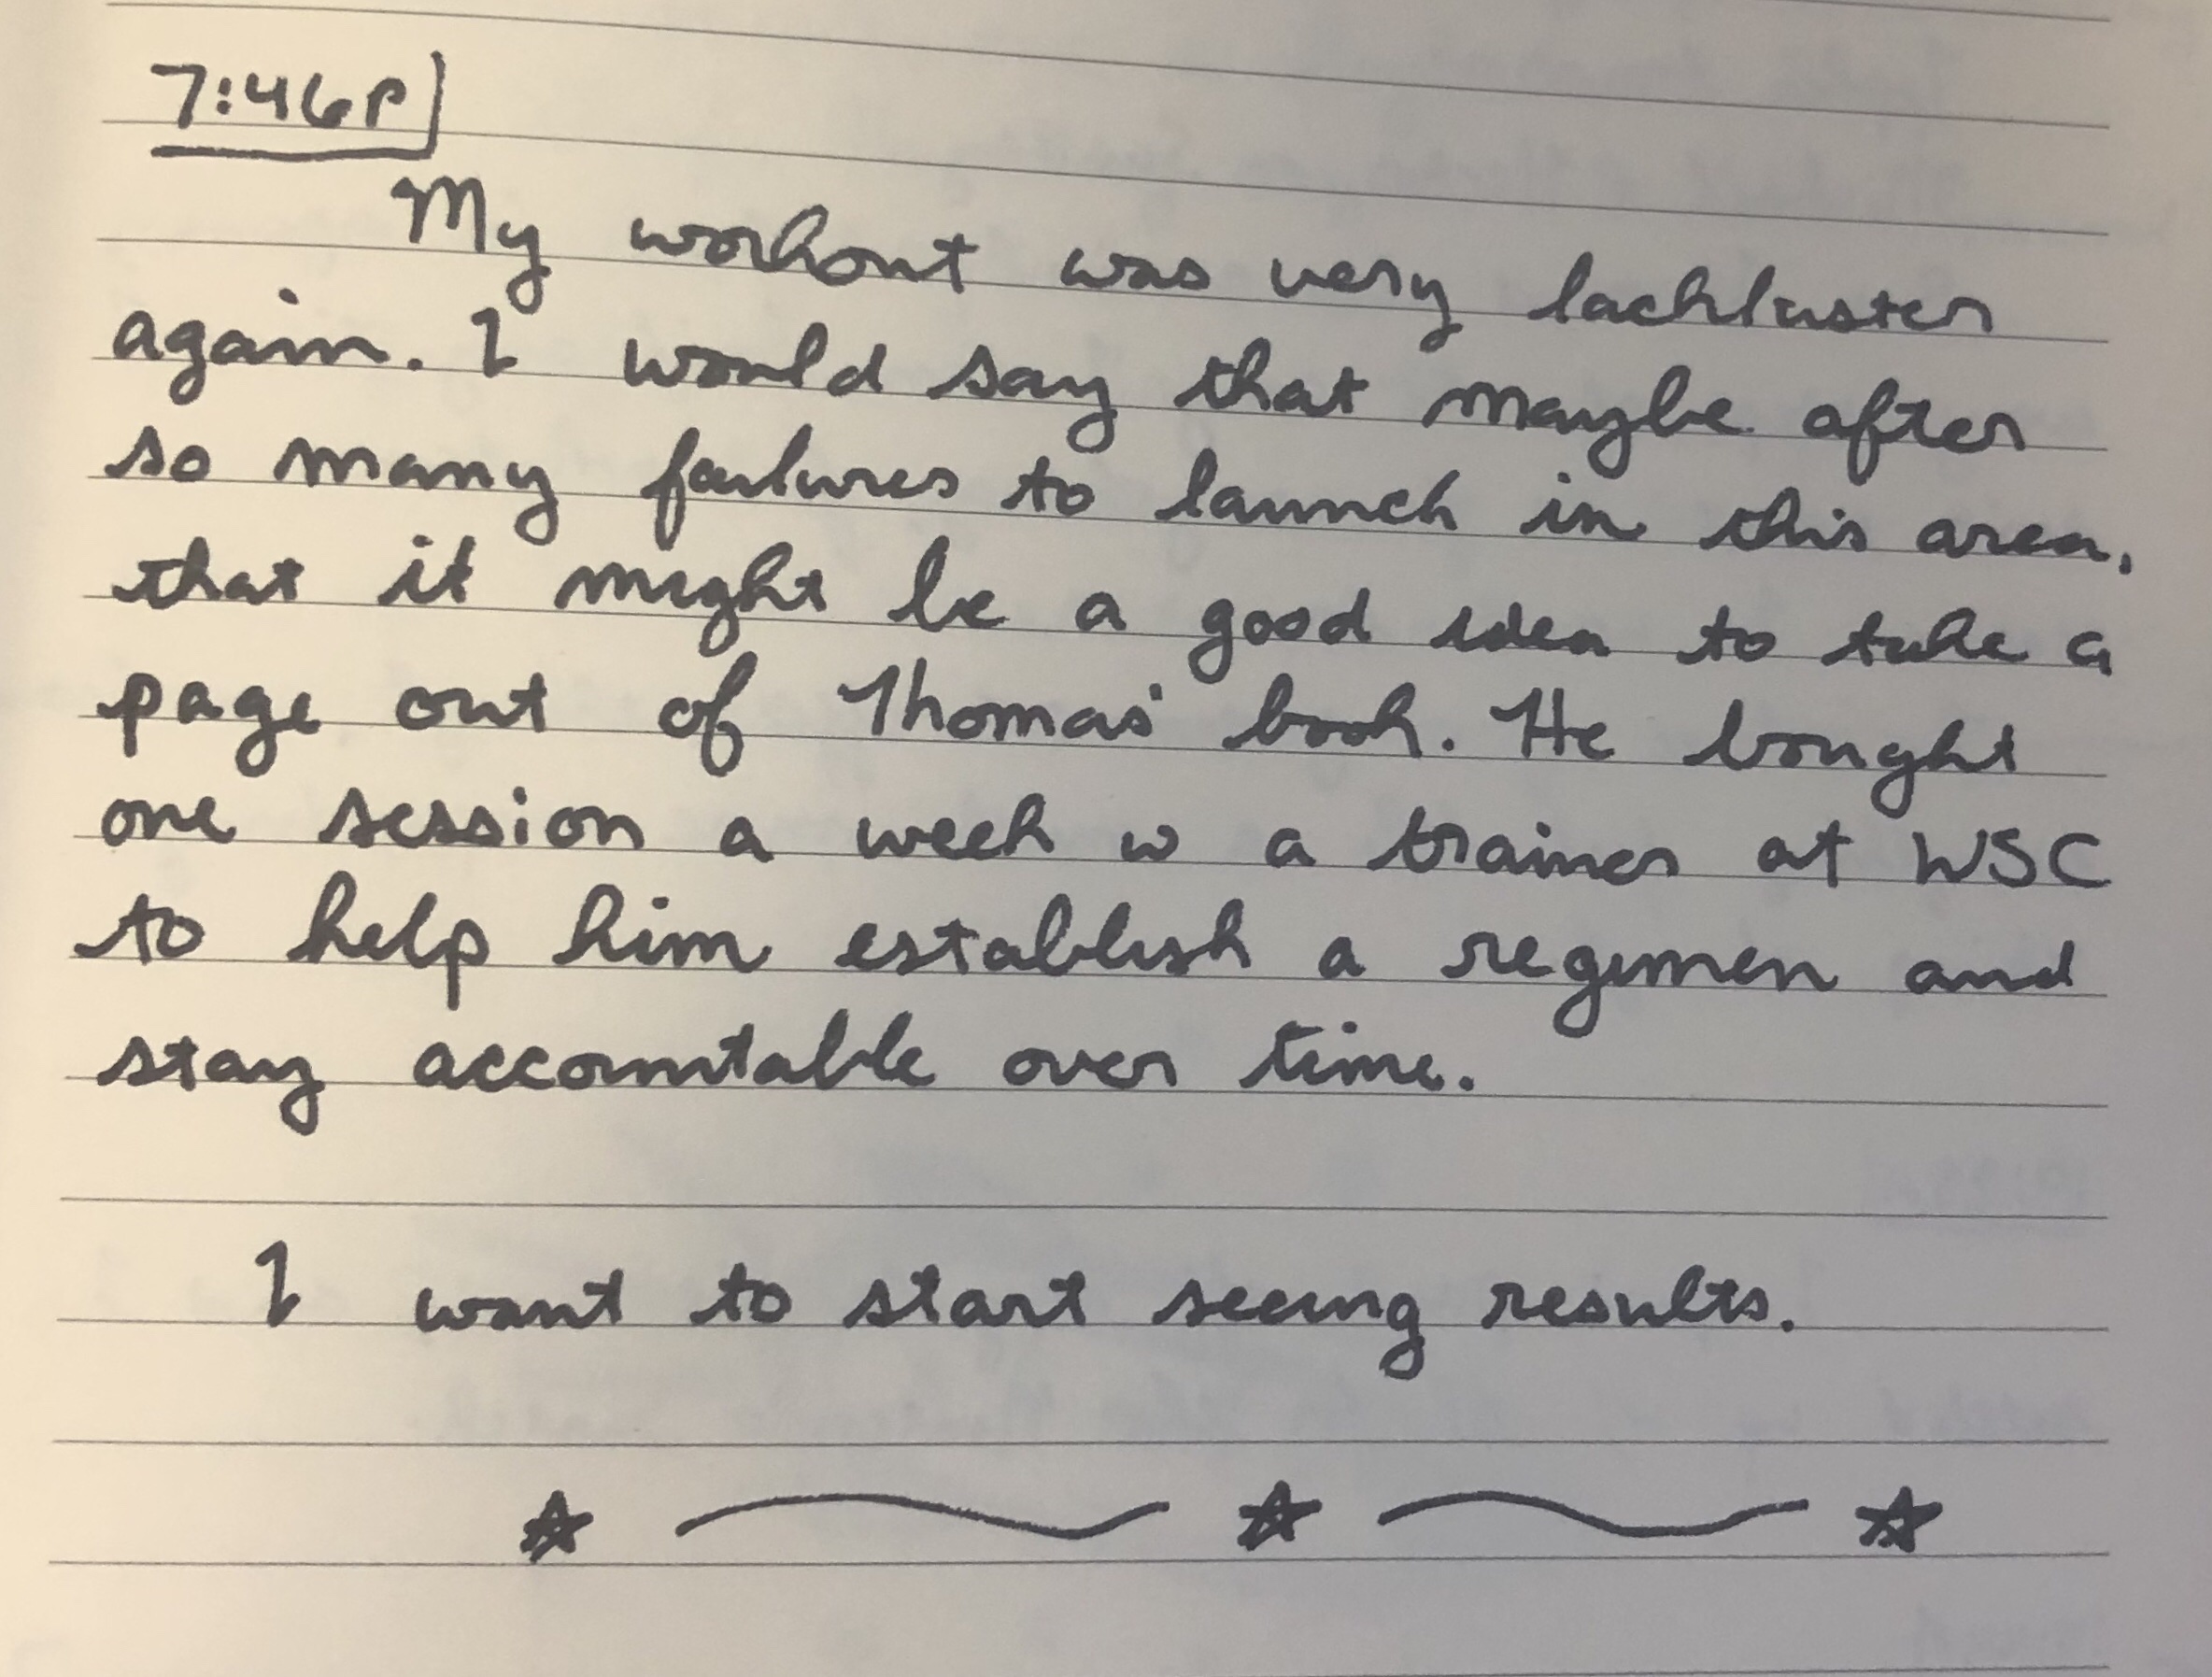 7:46P
My workout was very lackluster
again. I would say that maybe after
so many failures to launch in this area,
that it might be a good idea to take a
page out of Thomas' book. He bought
one session a week w a trainer at WSC
to help him establish a regimen and
stay accountable over time.
I want to start seeing results.